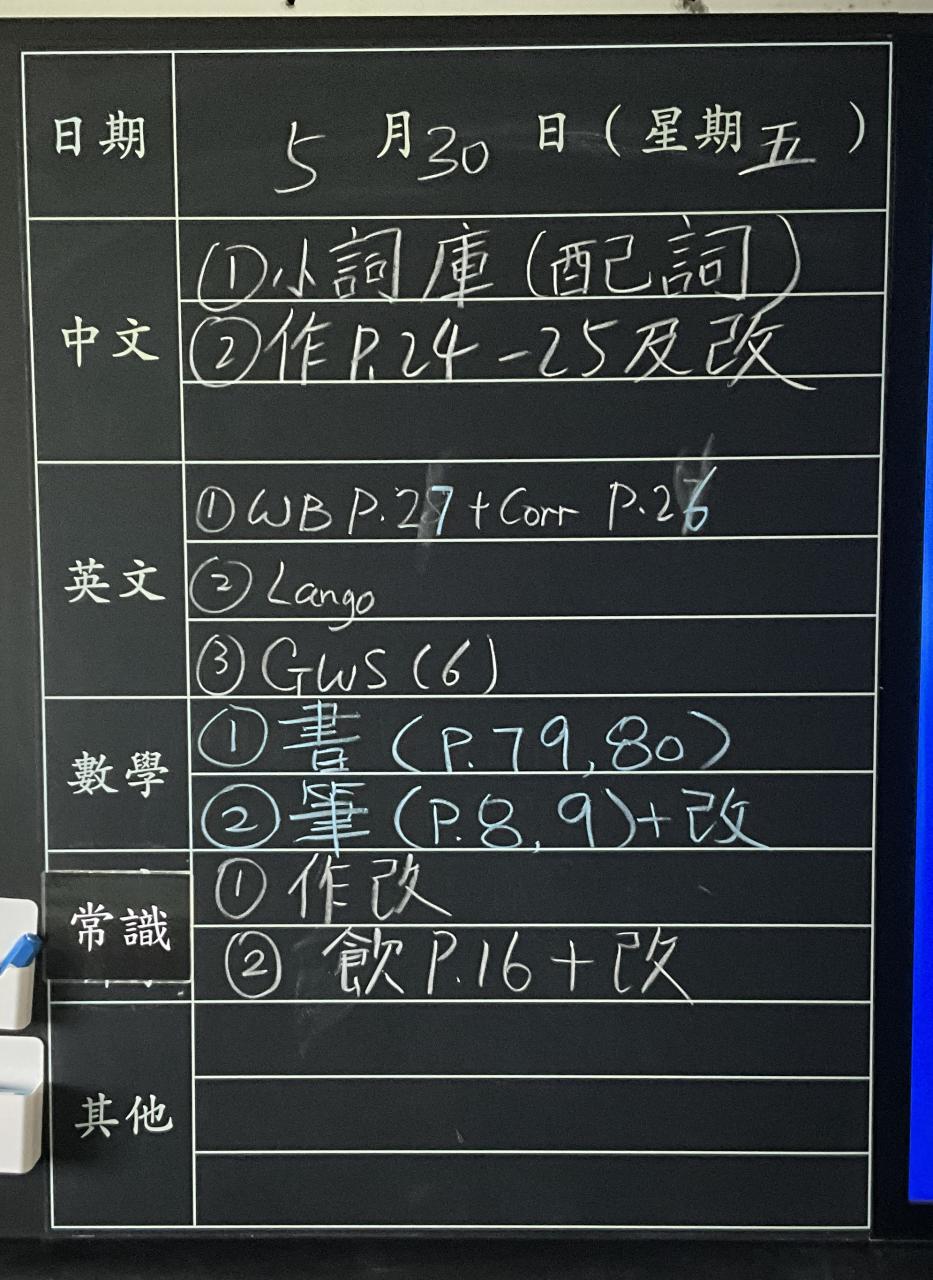 日期 5月30日（星期五）
中文
①小詞庫(配詞)
②作P.24-25及改
英文
①WB P.27+Corr P.26
②Lango
③GWS(6)
數學
①書(P.79,80)
②筆(P.8,9)+改
常識
①作改
②飲P.16+改
其他